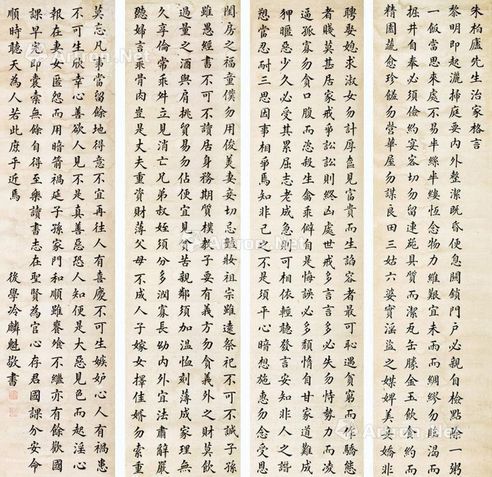 朱柏廬先生治家格言
黎明即起灑掃庭要內外整潔既昏便息關鎖門戶必親自檢點除一粥
一飯當思來處不易半絲半縷恆念物力維艱宜未雨而綢繆勿臨渴而
掘井自奉必須儉約宴客切勿留連器具質而潔瓦缶勝金玉飲食約而
精園蔬愈珍饈勿營華屋勿謀良田三姑六婆實淫盜之媒婢美妾嬌非
聘娶媳求淑女勿計厚奩見富貴而生諂容者最可恥遇貧窮而驕態
者賤莫甚居家戒爭訟訟則終凶處世戒多言言多必失勿恃勢力而凌
逼孤寡勿貪口腹而恣殺生禽乖僻自是悔誤必多頹惰自甘家道難
狎暱惡少久必受其累屈志老成急則可相依輕聽發言安知非人之譖
愬當忍耐三思因事相爭焉知非己之不是須平心暗想施惠勿念受恩
閨房之福童僕勿用俊美妻妾切忌艷妝祖宗雖遠祭祀不可不誠子孫
雖愚經書不可不讀居身務期質樸教子要有義方勿貪義外之財莫飲
過量之酒與肩挑貿易勿佔便宜見貧苦親鄰須加溫恤刻薄成家理無
久享倫常乖舛立見消亡兄弟叔姪須分多潤寡長幼內外宜法肅辭嚴
聽婦言乖骨肉豈是丈夫重資財薄父母不成人子嫁女擇佳婿勿索重
莫忘凡事當留餘地得意不宜再往人有喜慶不可生嫉妒心人有禍患
不可生欣幸心善欲人見不是真善惡恐人知便是大惡見色而起淫心
報在妻女匿怨而用暗箭禍延子孫家門和順雖饔飧不繼亦有餘歡國
課早完即囊橐無餘自得至樂讀書志在聖賢為官心存君國課分安命
順時聽天為人若此庶乎近焉
後學冷麟魁敬書